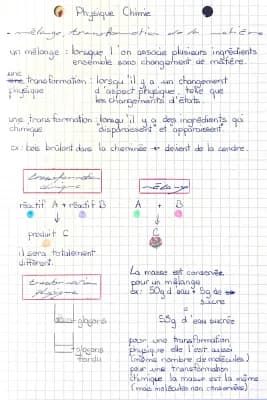 Physique Chimie
- mélange, transformation de la matière
un mélange : lorsque l'on associe plusieurs ingrédients
ensemble sans changement de matière.
une transformation : lorsqu'il y a un changement
physique d'aspect physique, telle que
les changements d'états.
une transformation : lorsqu'il y a des ingrédients qui
chimique disparaissent et apparaissent.
ex : bois brûlant dans la cheminée → devient de la cendre.
transformation
chimique
mélange
réactif A + réactif B
A + B
produit C
C
il sera totalement
différent.
transformation
physique
glaçons
glaçons
fondu
La masse est conservée
pour un mélange
ex : 50g d'eau + 5g de
sucre
=
55g d'eau sucrée
pour une transformation
physique elle l'est aussi
(même nombre de molécules)
pour une transformation
chimique la masse est la même
(mais molécules non conservées)